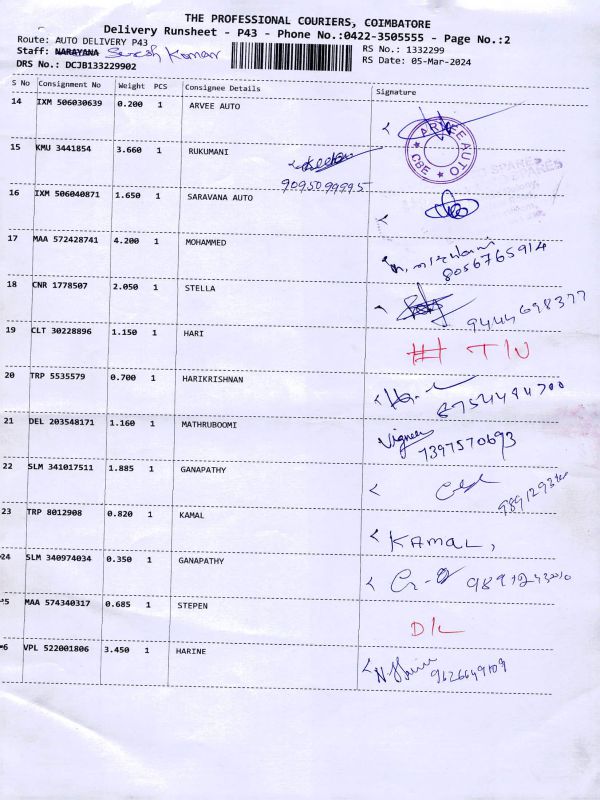 THE PROFESSIONAL COURIERS, COIMBATORE
Delivery Runsheet - P43 - Phone No.:0422-3505555 - Page No.:2
Route: AUTO DELIVERY P43 RS No.: 1332299
Staff: NARAYANA Suresh Kumar RS Date: 05-Mar-2024
DRS No.: DCJB133229902
S No Consignment No Weight PCS Consignee Details Signature
14 IXM 506030639 0.200 1 ARVEE AUTO
ARVEE AUTO CBE
15 KMU 3441854 3.660 1 RUKUMANI
9095099995
16 IXM 506040871 1.650 1 SARAVANA AUTO
17 MAA 572428741 4.200 1 MOHAMMED
8056765914
18 CNR 1778507 2.050 1 STELLA
9444698377
19 CLT 30228896 1.150 1 HARI T/U
20 TRP 5535579 0.700 1 HARIKRISHNAN
8754484700
21 DEL 203548171 1.160 1 MATHRUBOOMI Vignesh
7397570693
22 SLM 341017511 1.885 1 GANAPATHY
23 TRP 8012908 0.820 1 KAMAL
KAMAL,
24 SLM 340974034 0.350 1 GANAPATHY
5 MAA 574340317 0.685 1 STEPEN
D/L
6 VPL 522001806 3.450 1 HARINE
9626649109